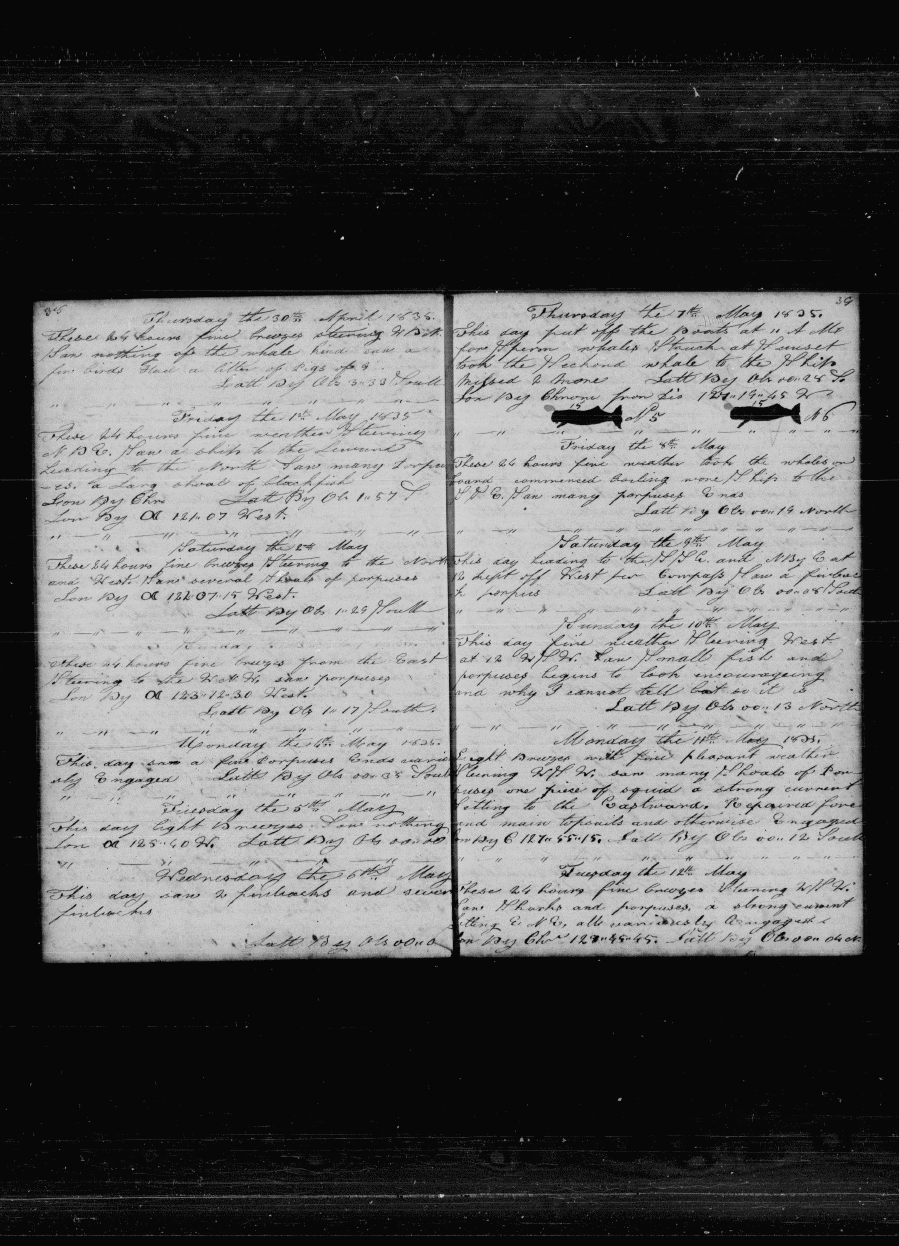 35
Thursday the 30th April 1835.
These 24 hours fine breezes steering W B N.
Saw nothing of the whale kind saw a
few birds Had a litter of Pigs of 9.
Latt By Obs 3"33 South
Friday the 1st May 1835
These 24 hours fine weather Steering
N B E. Saw a ship to the Leward
heading to the North Saw many Porpus
es. a Larg shoal of blackfish
Lon By Chro Latt By Ob 1"57 S
Lon By 121"07 West.
Saturday the 2nd May
These 24 hours fine breezes Steering to the North
and West. Saw several Shoals of porpuses
Lon By 122"07"15 West.
Latt By Obs 1"29 South
Sunday
These 24 hours fine breezes from the East
Steering to the W N W. saw porpuses
Lon By 123"12"30 West.
Latt By Obs 1"17 South
Monday the 4th May 1835.
This day saw a fine Porpuses Ends vario
sly Engaged Latt By Obs 00"38 South
Tuesday the 5th May
This day light Breezes. Saw nothing
Lon 125"40 W. Latt By Obs 00"00
Wednesday the 6th May
This day saw 2 finbacks and seven
finbacks
Latt By Obs 00"0
36
Thursday the 7th May 1835.
This day put off the Boats at " A Me
for Sperm whales Struck at Sunset
took the Seckond whale to the Ship
Missed 2 more Latt By Obs 00"28 So
Lon By Chrone from Dis 127"19"45 W
15 No 5 15 No 6
Friday the 8th May
These 24 hours fine weather took the whales on
board commenced boiling wore Ship to the
S S E. Saw many porpuses Ends
Latt By Obs 00"19 North
Saturday the 9th May
This day heading to the S S E. and N By E at
12 kept off West per Compass Saw a finback
& porpus Latt By Obs 00"08 South
Sunday the 10th May
This day fine weather Steering West
at 12 W S W. Saw Small fish and
porpuses begins to look encourageing
and why I cannot tell but so it is
Latt By Obs 00"13 North
Monday the 11th May 1835.
Light Breezes with fine pleasant weather
Steering W S W. saw many Shoals of Por
puses one piece of squid a strong current
Setting to the Eastward. Repaired fore
and main topsails and otherwise Engaged
Lon By C 127"45"15. Latt By Obs 00"12 South
Tuesday the 12th May
These 24 hours fine breezes Steering W S W.
Saw Sharks and porpuses, a strong current
Setting E N E, all variously Engaged
Lon By Chr 129"45"45. Latt By Obs 00"04 N.